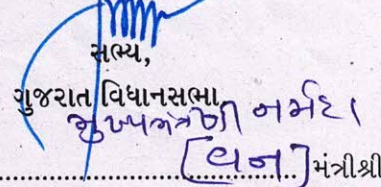 સભ્ય,
ગુજરાત વિધાનસભા,
મુખ્યમંત્રીશ્રી નર્મદા
[વન] મંત્રીશ્રી